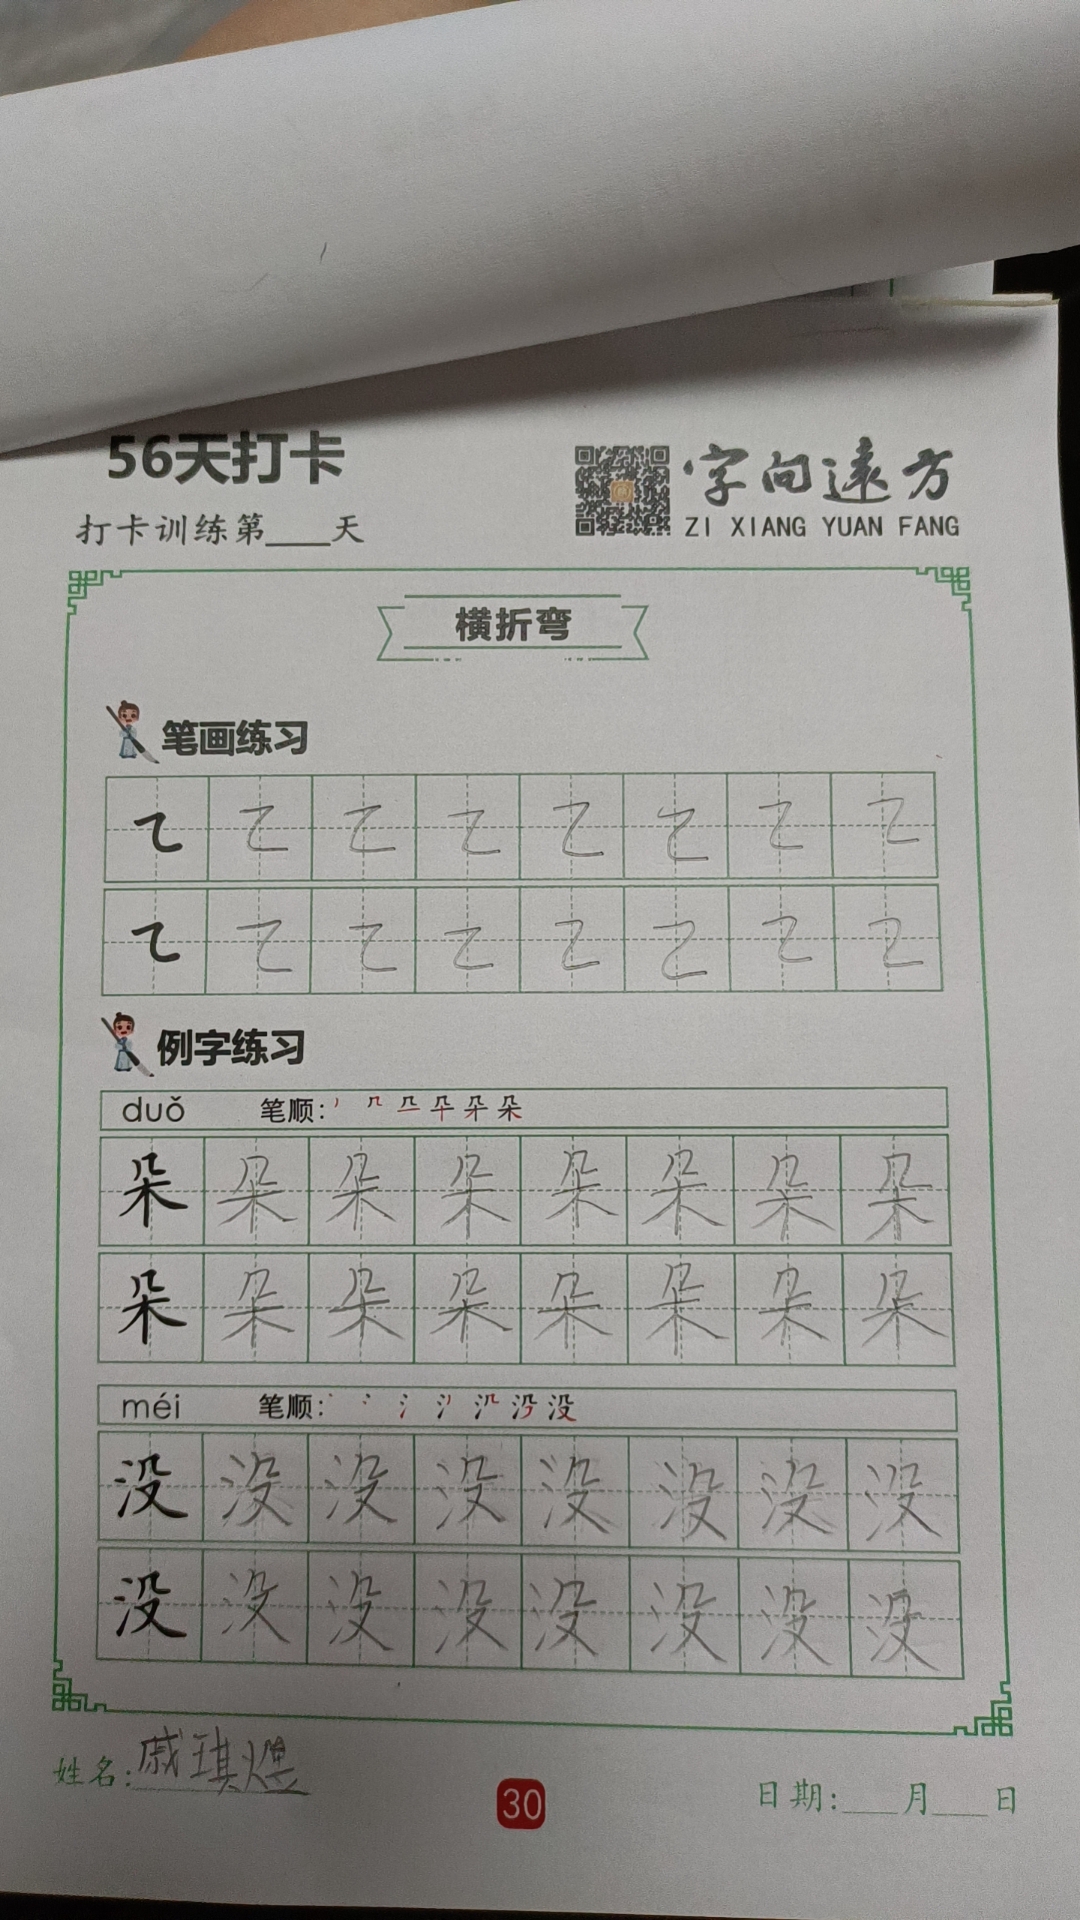 56天打卡
打卡训练第____天
字向遠方
ZI XIANG YUAN FANG
横折弯
笔画练习
例字练习
duǒ 笔顺:
朵 朵 朵 朵 朵 朵 朵 朵
朵 朵 朵 朵 朵 朵 朵 朵
méi 笔顺:
没 没 没 没 没 没 没 没
没 没 没 没 没 没 没 没
姓名:戚琪煜
30
日期:____月____日